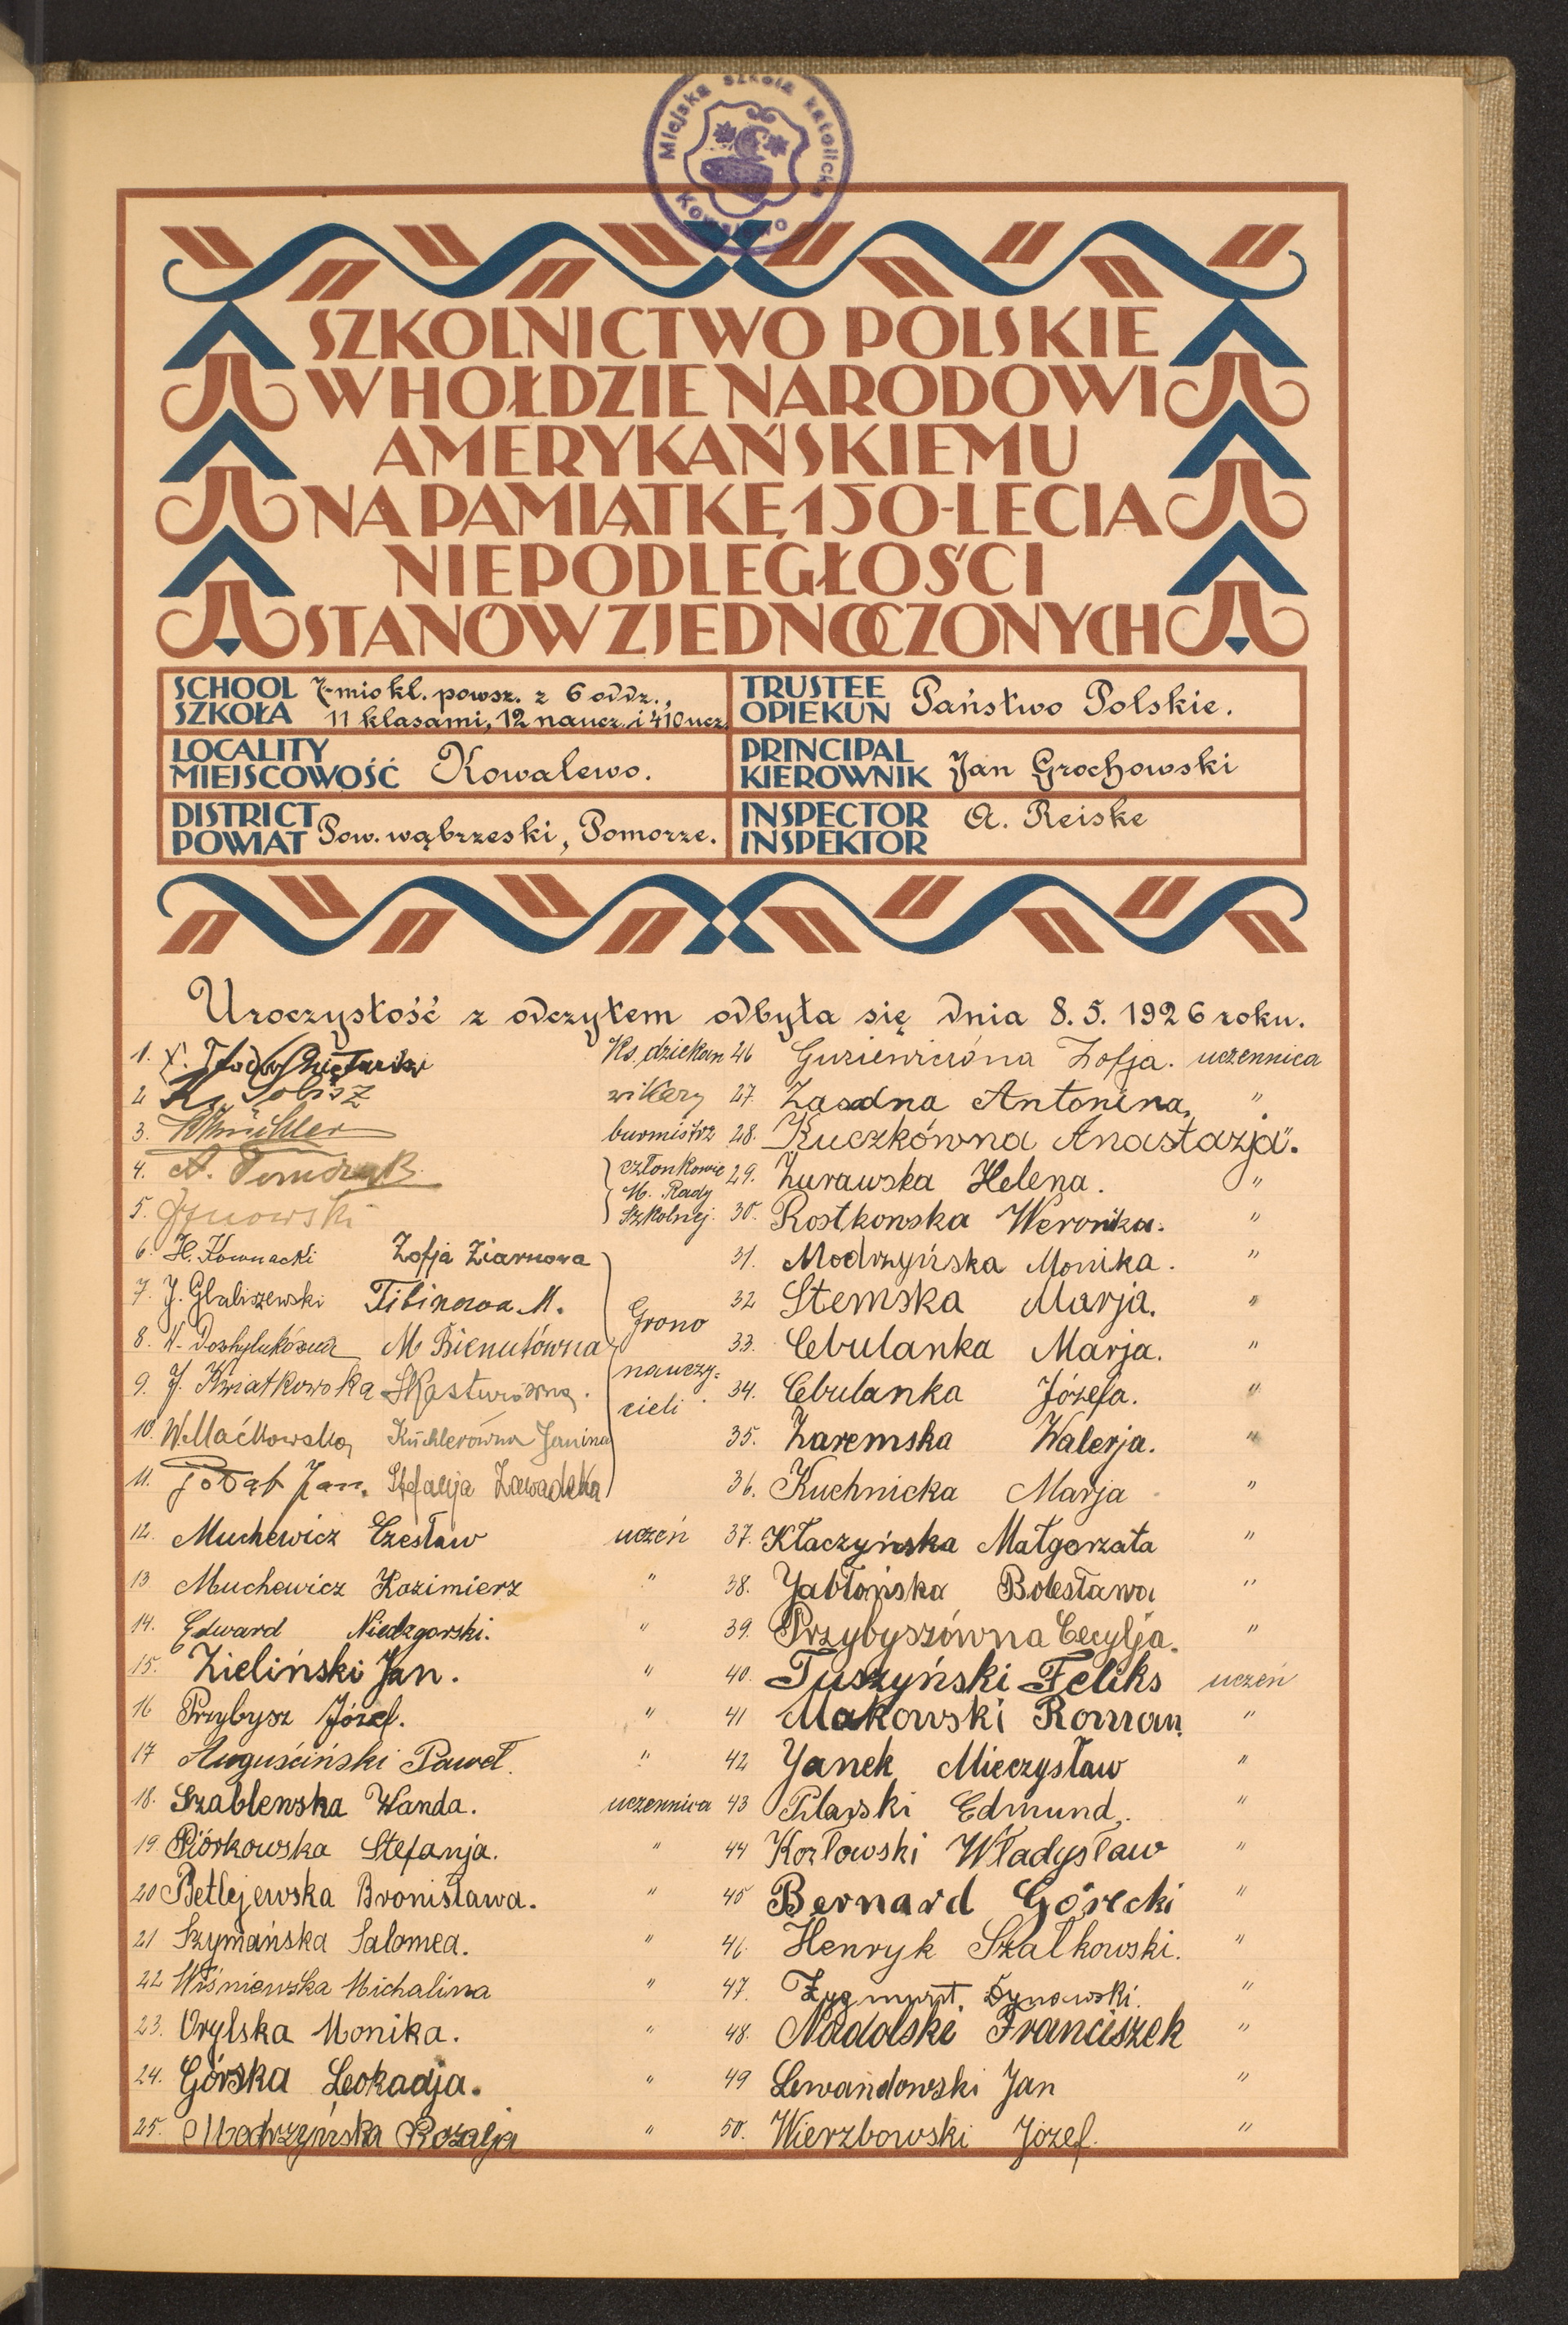 Miejska szkoła katolicka
Kowalewo
SZKOLNICTWO POLSKIE
W HOŁDZIE NARODOWI
AMERYKAŃSKIEMU
NA PAMIĄTKĘ 150-LECIA
NIEPODLEGŁOŚCI
STANÓW ZJEDNOCZONYCH
SCHOOL
SZKOŁA
7-mio kl. powsz. z 6 oddz.,
11 klasami, 12 naucz. i 410 ucz.
TRUSTEE
OPIEKUN
Państwo Polskie.
LOCALITY
MIEJSCOWOŚĆ
Kowalewo.
PRINCIPAL
KIEROWNIK
Jan Grochowski
DISTRICT
POWIAT
Pow. wąbrzeski, Pomorze.
INSPECTOR
INSPEKTOR
A. Reiske
Uroczystość z odczytem odbyła się dnia 8. 5. 1926 roku.
1. Ks. dziekan
2 Ks. wikary
3. burmistrz
4. członkowie
M. Rady
5. Szkolnej
6. H. Kownacki Zofja Ziarnowa
7. J. Tibinowa M. Grono
8. M Bienutówna
9. J. Kwiatkowska nauczy-
cieli
10. W. Maćkowska Küchlerówna Janina
11. Gołąb Jan. Stefanja Zawadzka
12. Muchewicz Czesław uczeń
13 Muchewicz Kazimierz "
14. Edward Niedzgorski. "
15. Zieliński Jan. "
16 Przybysz Józef. "
17 Auguściński Paweł. "
18. Szablewska Wanda. uczennica
19 Piórkowska Stefanja. "
20 Betlejewska Bronisława. "
21 Szymańska Salomea. "
22 Wiśniewska Michalina "
23. Orylska Monika. "
24. Górska Leokadja. "
25. Modrzyńska Rozalja "
26 Guziewiczóna Zofja. uczennica
27. Zasadna Antonina, "
28. Kuczkówna Anastazja. "
29. Żurawska Helena. "
30. Rostkowska Weronika. "
31. Modrzyńska Monika. "
32 Stemska Marja. "
33. Cebulanka Marja. "
34. Cebulanka Józefa. "
35. Zaremska Walerja. "
36. Kuchnicka Marja "
37. Kłaczyńska Małgorzata "
38. Jabłońska Bolesława "
39. Przybyszówna Cecylja. "
40. Tuszyński Feliks uczeń
41 Makowski Roman "
42 Janek Mieczysław "
43 Pilarski Edmund, "
44 Kozłowski Władysław "
45 Bernard Górecki "
46. Henryk Szałkowski. "
47. Zygmunt. Synowski. "
48. Nadolski Franciszek "
49 Lewandowski Jan "
50. Wierzbowski Józef. "